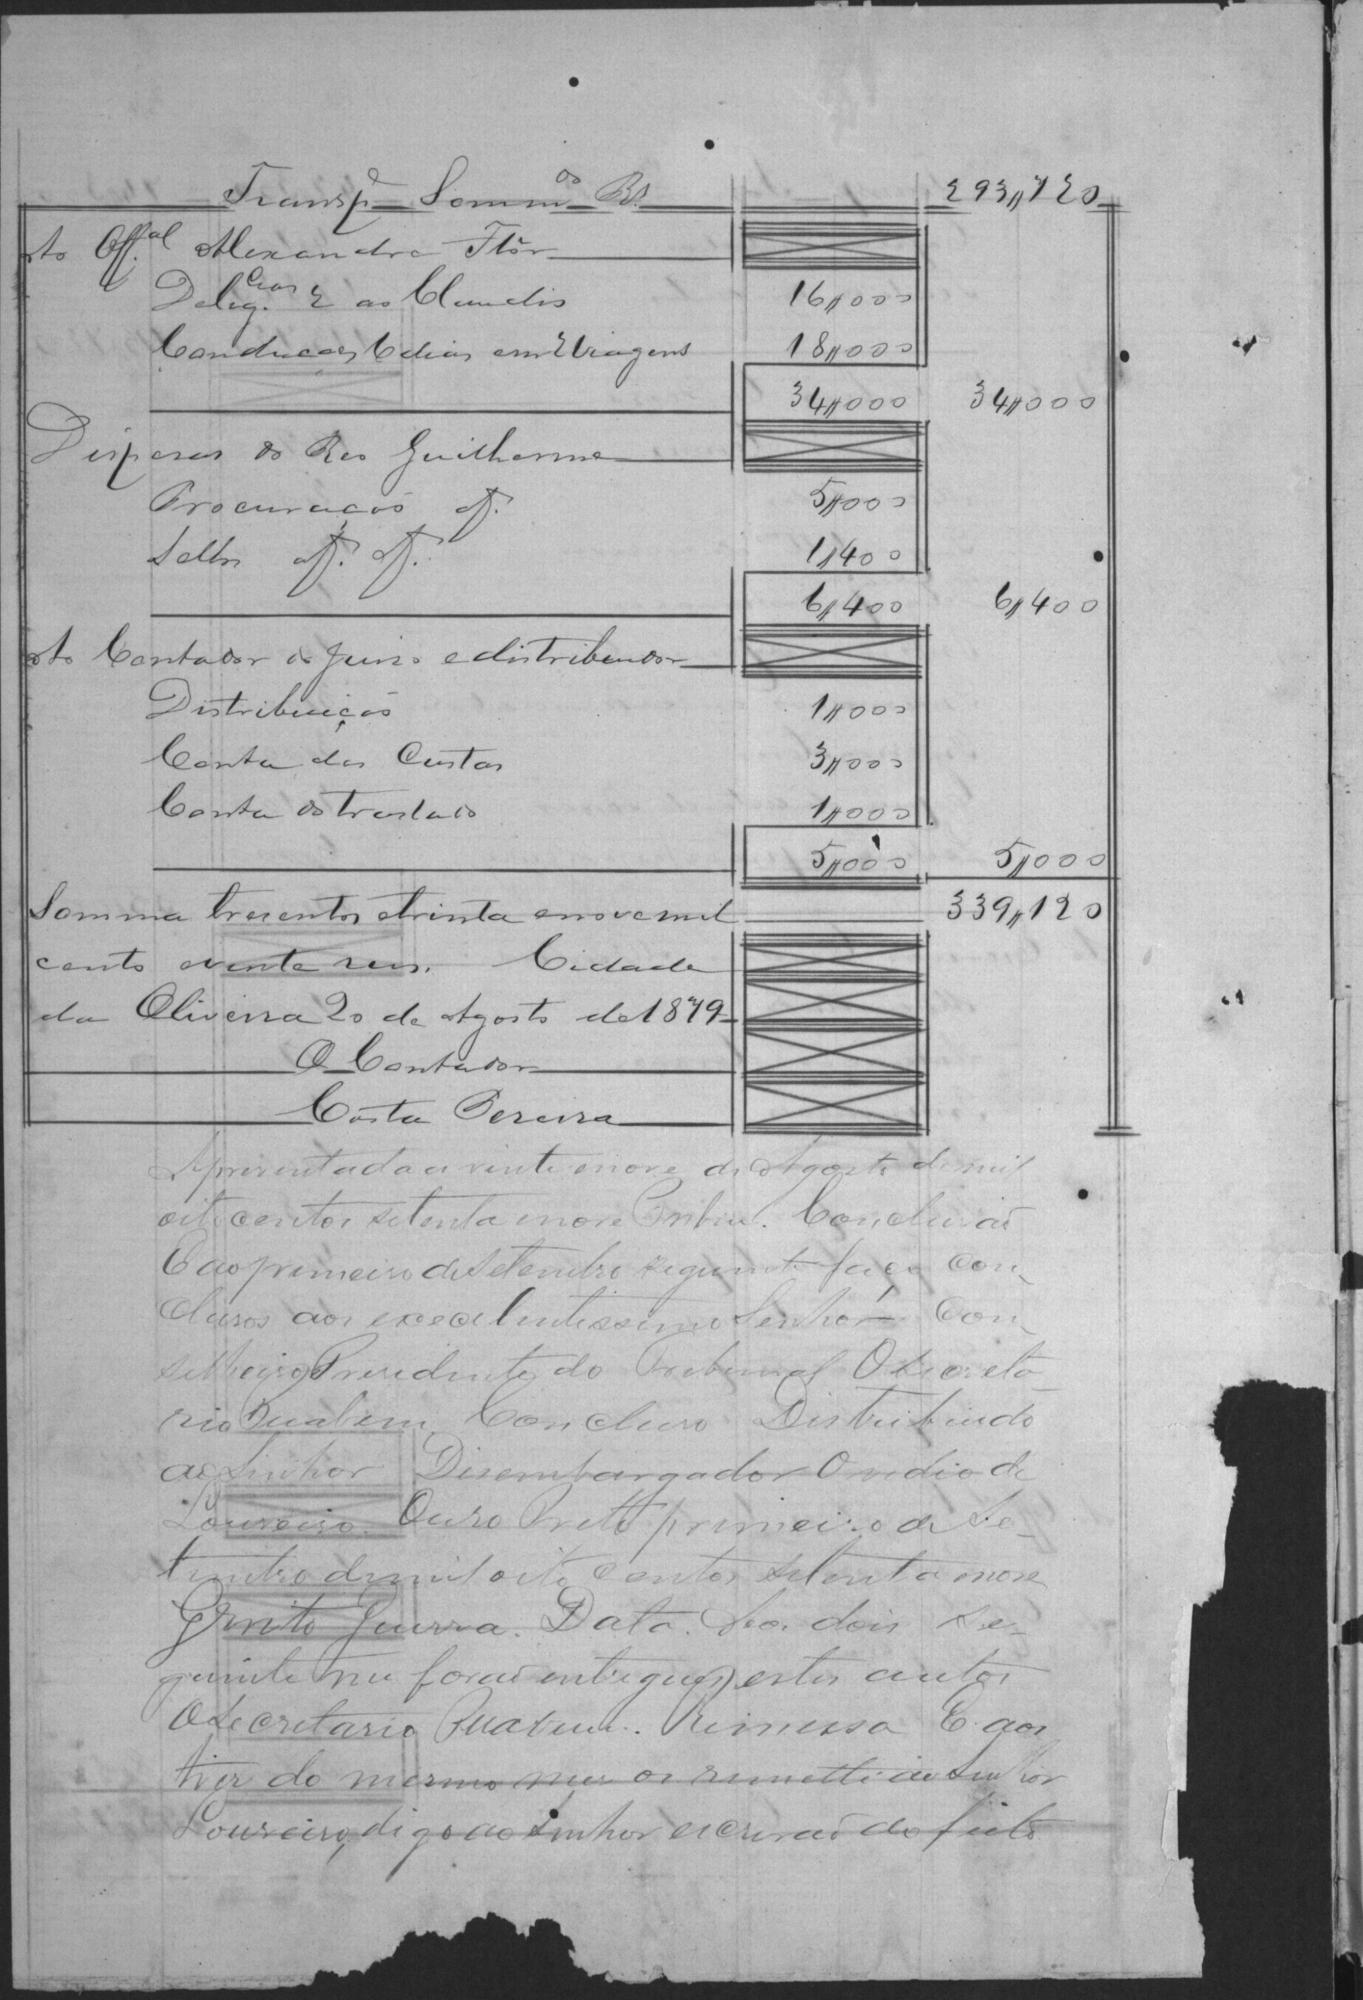 Transp.e Somm.os Rs. 293,,720
Ao Off.al Alexandre Flôr
Delig.cias 2 as Claudis 16,,000
Conducções Idias em 2 Viagens 18,,000
34,,000 34,,000
Dispesas do Reo Guilherme
Procuração af. 5,,000
Sello af. af. 1,,400
6,,400 6,,400
Ao Contador do Juizo e distribuidor
Distribuição 1,,000
Conta das Custas 3,,000
Conta do traslado 1,,000
5,,000 5,,000
Somma trezentos etrinta enovemil 339,,120
cento evinte reis. Cidade
da Oliveira 20 de Agosto de 1879
O Contador
Costa Pereira
Apresentada a vinte enove de Agosto demil
oitocentos setenta enove. Conclusão
E ao primeiro de Setembro seguinte faço con-
clusos aos excelentissimo Senhor Con-
selheiro Presidente do Tribunal O Secreta-
rio. Concluso Distribuido
ao Senhor Disembargador Ovidio de
Loureiro. Ouro Preto primeiro de Se-
tembro demil oito centos setenta enove
Guerra. Data. Aos dois se-
guinte me forão entregues estes autos
O Secretario. Remessa E aos
tres do mesmo mes os remetti ao Senhor
Loureiro, digo ao Senhor escrivão do feito